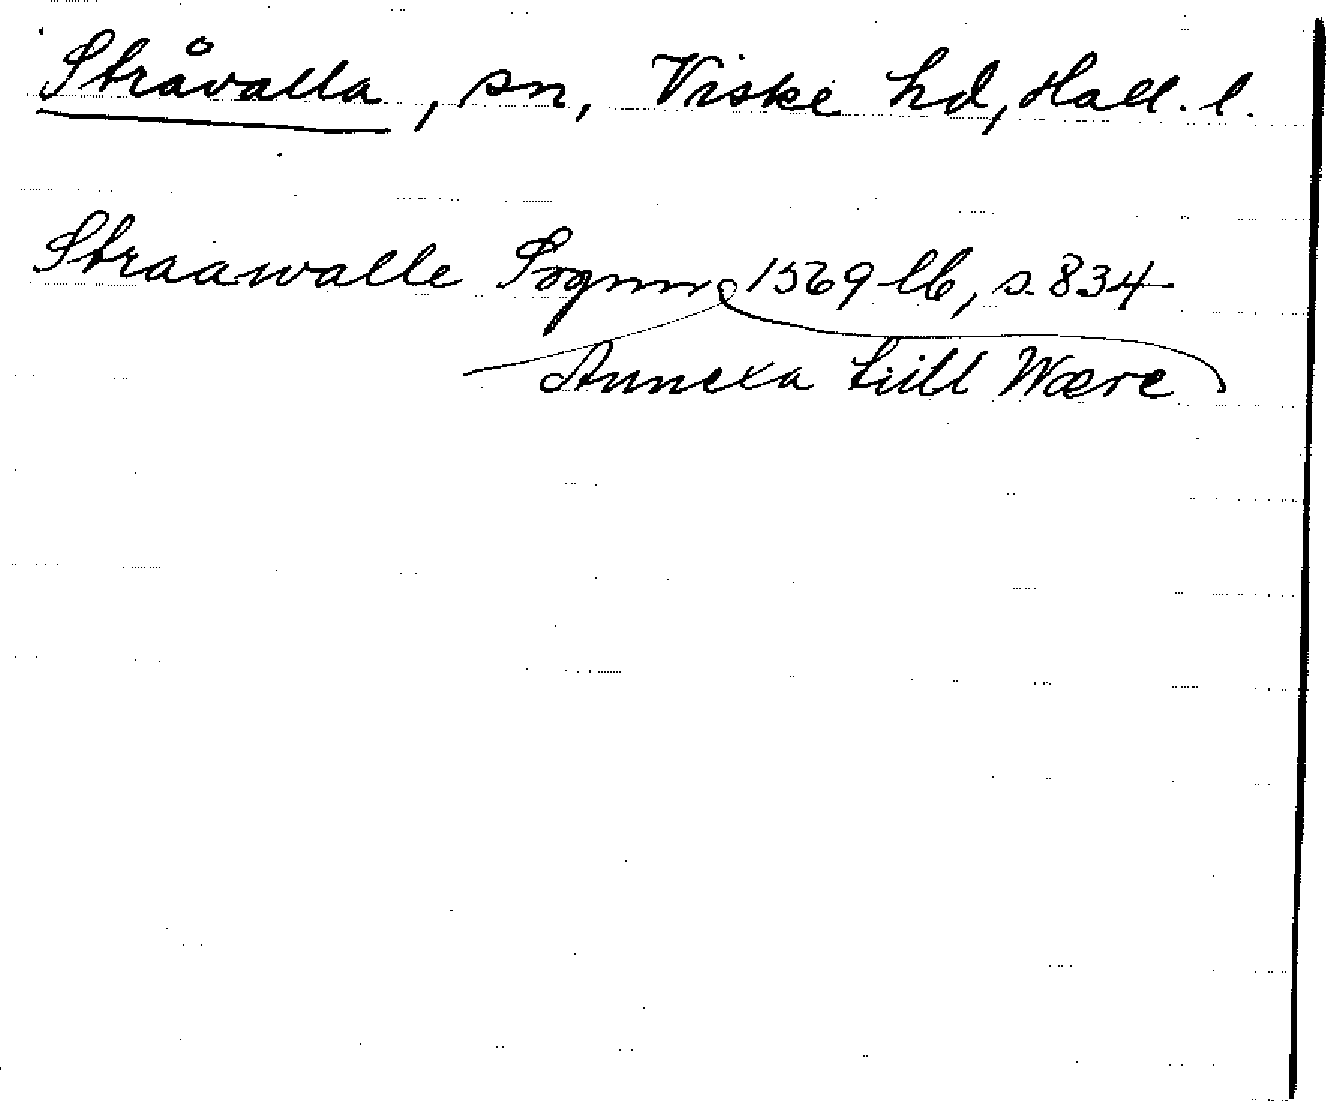 Stråvalla, sn, Viske hd, Hall. l.
Straawalle Sognn 1569 lb, s. 834
Annexa till Wære